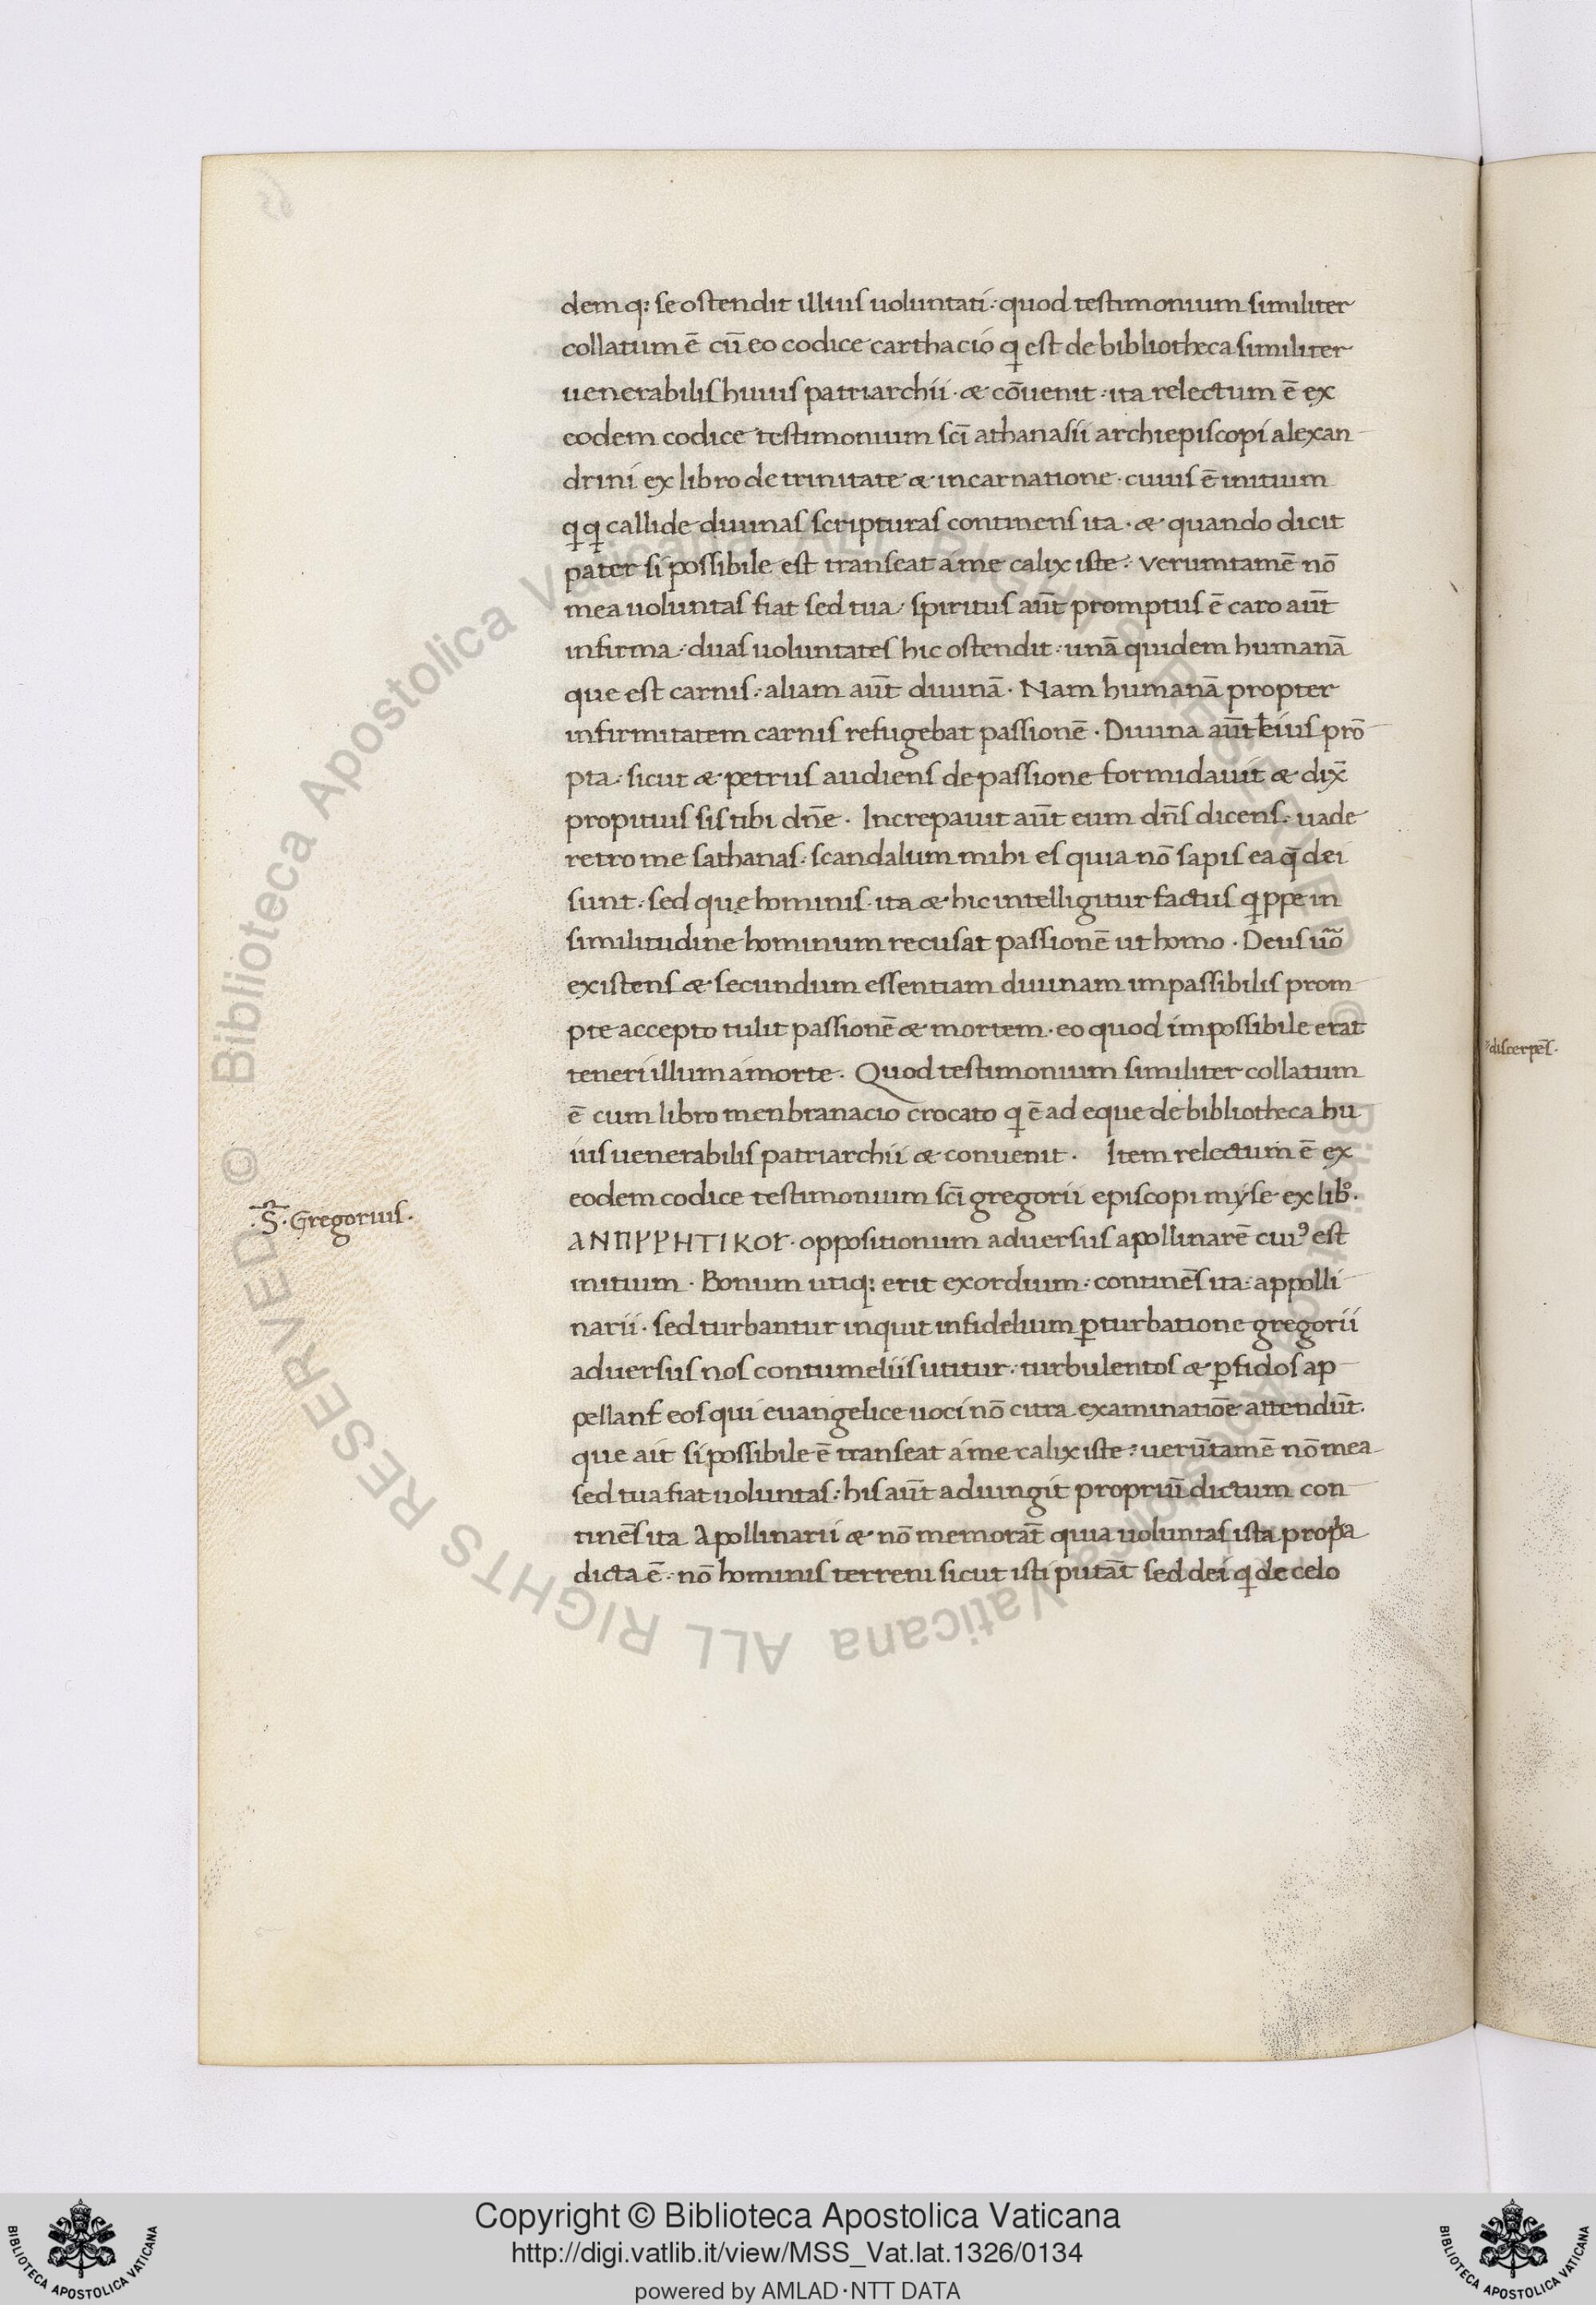 demq: se ostendit illius uoluntati: quod testimonium similiter
collatum ē cū eo codice carthacio q est de bibliotheca similiter
uenerabilis huius patriarchii. & cōuenit: ita relectum ē ex
eodem codice testimonium sc̄i athanasii archiepiscopi alexan
drini ex libro de trinitate & incarnatione. cuius ē initium
qq callide diuinas scripturas continens ita. & quando dicit
pater si possibile est transeat a me calix iste: verumtamē nō
mea uoluntas fiat sed tua: spiritus aūt promptus ē caro aūt
infirma: duas uoluntates hic ostendit: unā quidem humanā
que est carnis: aliam aūt diuinā. Nam humanā propter
infirmitatem carnis refugebat passionē. Diuina aūt eius prō
pta: sicut & petrus audiens de passione formidauit & dix̄
propitius sis tibi dn̄e. Increpauit aūt eum dn̄s dicens: uade
retro me sathanas: scandalum mihi es quia nō sapis ea q̄ dei
sunt: sed que hominis. ita & hic intelligitur factus qppe in
similitudine hominum recusat passionē ut homo. Deus uō
existens & secundum essentiam diuinam impassibilis prom
pte accepto tulit passionē & mortem. eo quod impossibile erat
teneri illum a morte. Quod testimonium similiter collatum
ē cum libro menbranacio crocato q ē ad eque de bibliotheca hu
ius uenerabilis patriarchii & conuenit. Item relectum ē ex
eodem codice testimonium sc̄i gregorii episcopi myse ex libº.
.S̄. Gregorius.
oppositionum aduersus apollinarē cuiꝰ est
initium. Bonum utiq: erit exordium: continēs ita: appolli
narii. sed turbantur inquit infidelium ꝑturbatione gregorii
aduersus nos contumeliis utitur: turbulentos & ꝑfidos ap
pellant eos qui euangelice uoci nō citra examinatiōe attendūt.
que ait si possibile ē transeat a me calix iste: uerūtamē nō mea
sed tua fiat uoluntas: his aūt adiungit propriū dictum con
tinēs ita Apollinarii & nō memorāt quia uoluntas ista propa
dicta ē: nō hominis terreni sicut isti putāt sed dei q de celo
discerpēs.
Copyright © Biblioteca Apostolica Vaticana
http://digi.vatlib.it/view/MSS_Vat.lat.1326/0134
powered by AMLAD·NTT DATA
BIBLIOTECA APOSTOLICA VATICANA
BIBLIOTECA APOSTOLICA VATICANA
© Biblioteca Apostolica Vaticana ALL RIGHTS RESERVED © Biblioteca Apostolica Vaticana ALL RIGHTS RESERVED